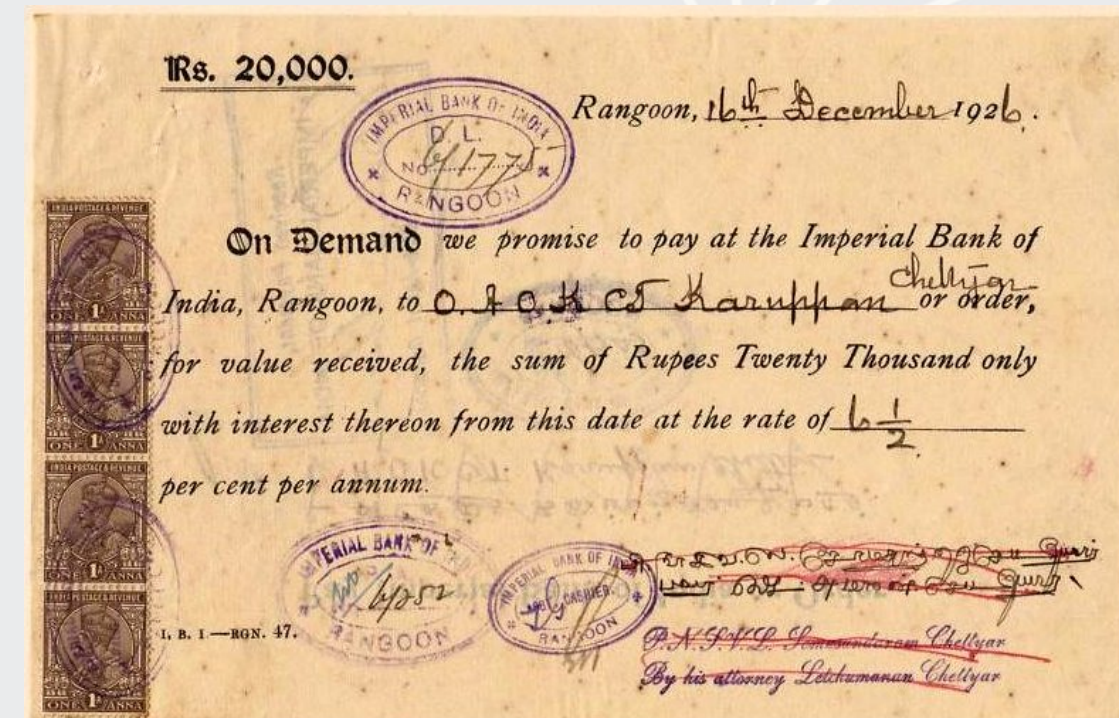 Rs. 20,000.
IMPERIAL BANK OF INDIA
D. L.
NO. 6/1775
RANGOON
Rangoon, 16th December 1926.
On Demand we promise to pay at the Imperial Bank of
Chettyar
India, Rangoon, to O. A. O. K. CT Karuppan or order,
for value received, the sum of Rupees Twenty Thousand only
with interest thereon from this date at the rate of 6 1/2
per cent per annum.
INDIA POSTAGE & REVENUE
1A
ONE ANNA
INDIA POSTAGE & REVENUE
1A
ONE ANNA
INDIA POSTAGE & REVENUE
1A
ONE ANNA
INDIA POSTAGE & REVENUE
1A
ONE ANNA
IMPERIAL BANK OF IND
RANGOON
IMPERIAL BANK OF INDIA
CASHIER.
RANGOON
I. B. I.—RGN. 47.
P. N. S. V. L. Somasundaram Chettyar
By his attorney Letchumanan Chettyar